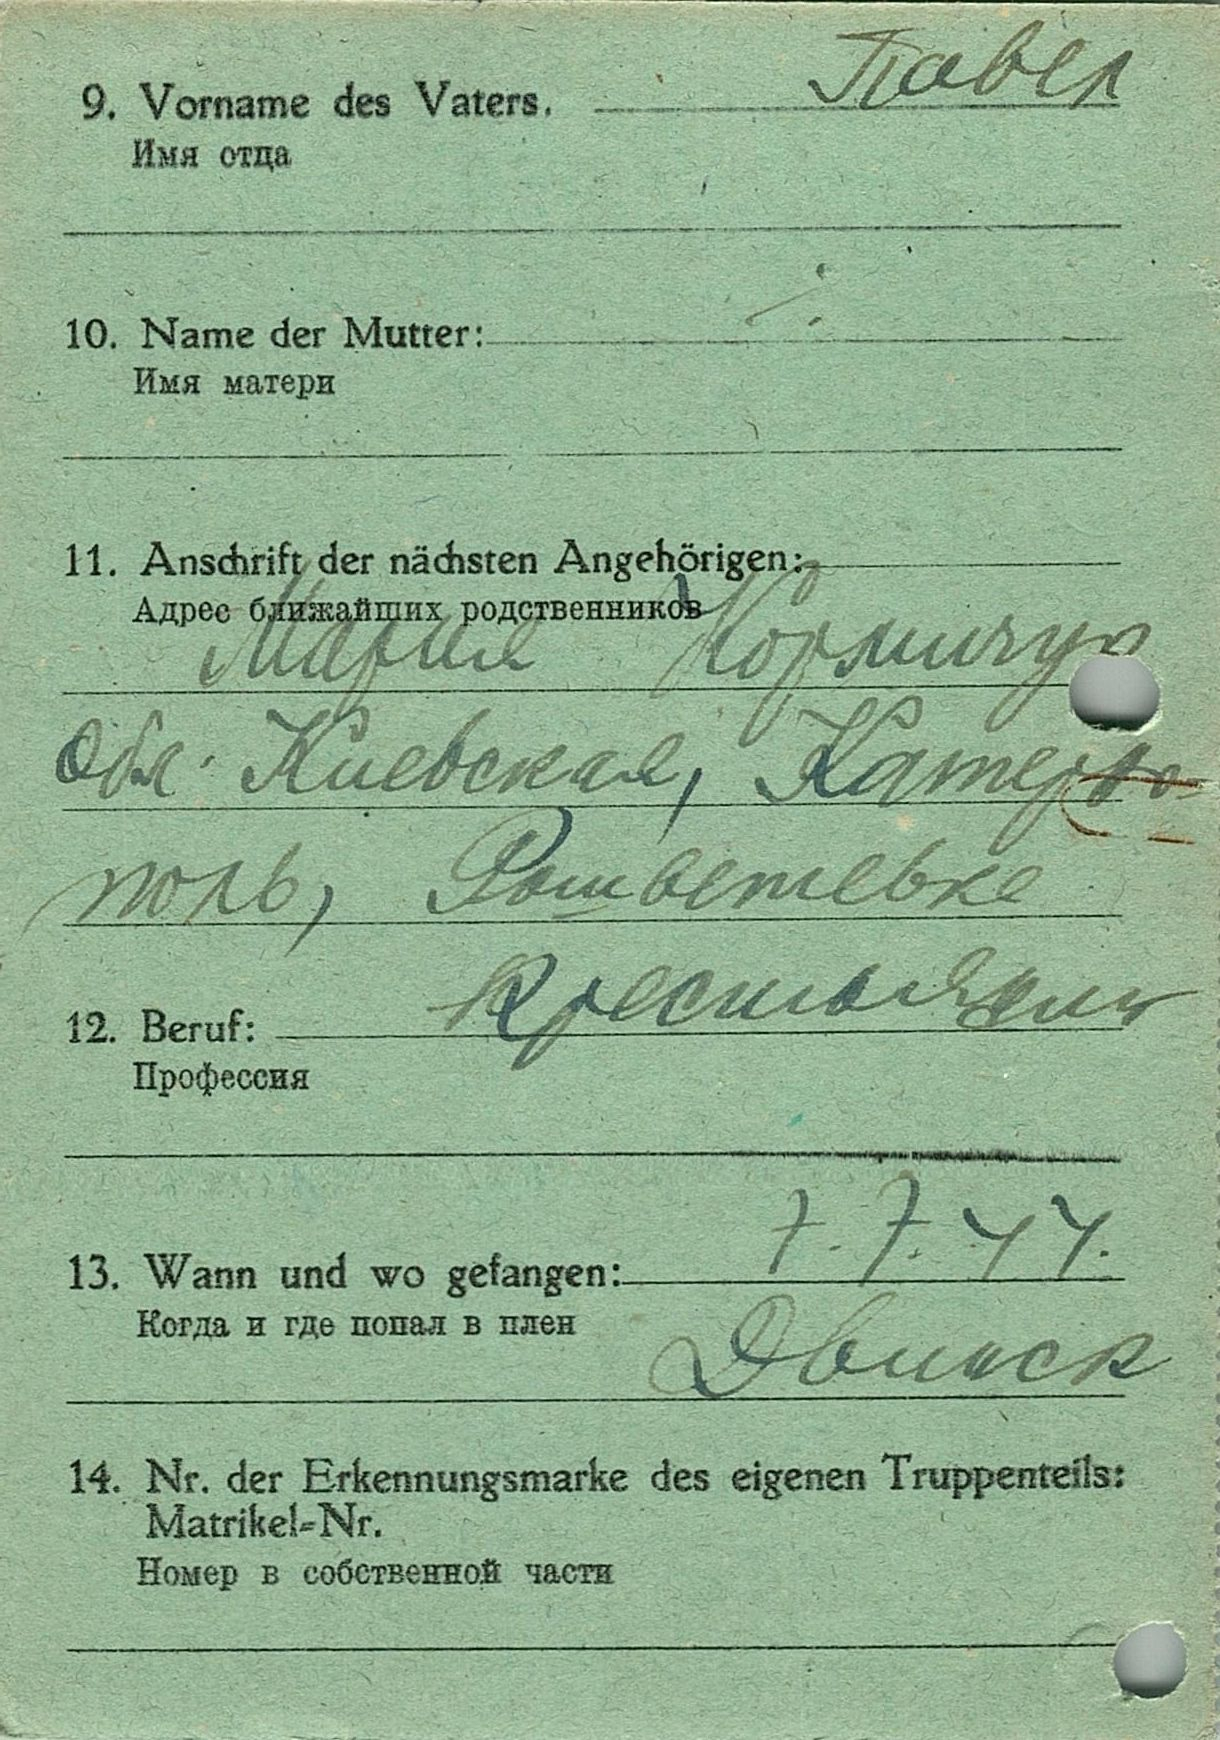 9. Vorname des Vaters. Павел
Имя отца
10. Name der Mutter: ÷
Имя матери
11. Anschrift der nächsten Angehörigen:
Адрес ближайших родственников
Мария Кормичук
обл. Киевская, Катеро-
поль,
12. Beruf: крестьянин
Профессия
13. Wann und wo gefangen: 7.7.44.
Когда и где попал в плен
Двинск
14. Nr. der Erkennungsmarke des eigenen Truppenteils:
Matrikel-Nr.
Номер в собственной части